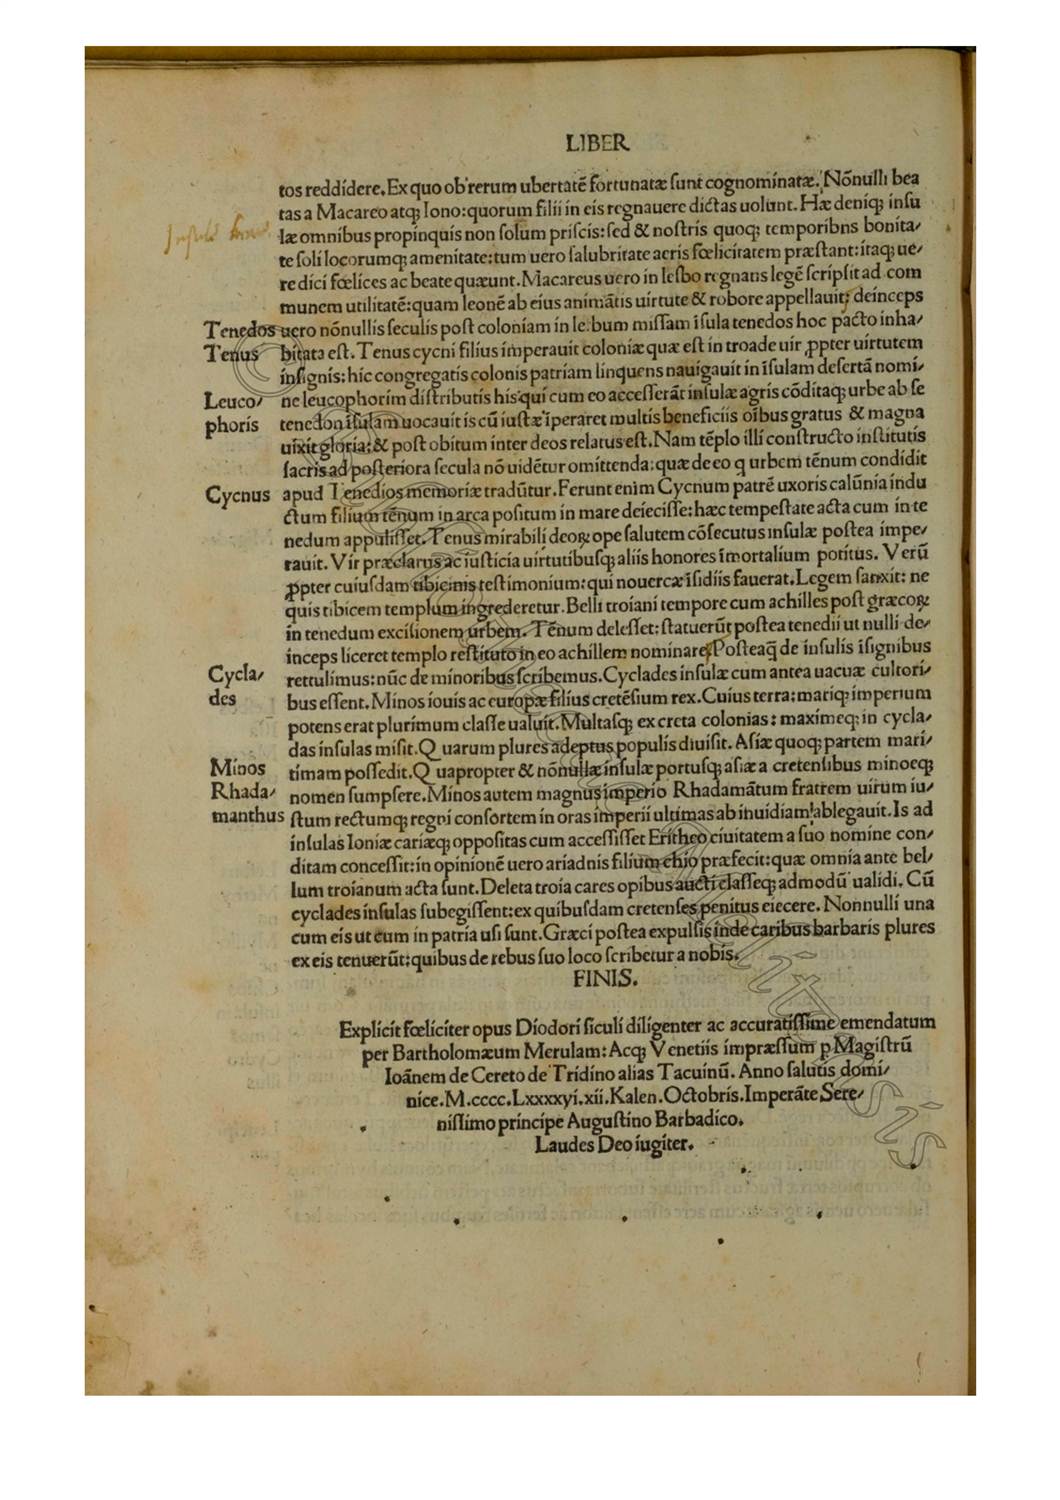 LIBER
tos reddidere. Ex quo ob rerum ubertatē fortunatæ ſunt cognominatæ. Nōnulli bea
tas a Macareo atq; Iono: quorum filii in eis regnauere dictas uolunt. Hæ deniq; inſu
læ omnibus propinquis non ſolum priſcis: ſed & noſtris quoq; temporibns bonita/
te ſoli locorumq; amenitate: tum uero ſalubritate aeris fœlicitatem præſtant: itaq; ue/
re dici fœlices ac beate quæunt. Macareus uero in leſbo regnans legē ſcripſit ad com
munem utilitatē: quam leonē ab eius animātis uirtute & robore appellauit; deinceps
Tenedos uero nōnullis ſeculis poſt coloniam in leſbum miſſam īſula tenedos hoc pacto inha/
Tenus bitata eſt. Tenus cycni filius imperauit coloniæ quæ eſt in troade uir ꝓpter uirtutem
inſignis: hic congregatis colonis patriam linquens nauigauit in īſulam deſertā nomi/
Leuco/ ne leucophorim diſtributis his qui cum eo acceſſerāt inſulæ agris cōditaq; urbe ab ſe
phoris tenedon īſulam uocauit is cū iuſtæ īperaret multis beneficiis oībus gratus & magna
uixit gloria: & poſt obitum inter deos relatus eſt. Nam tēplo illi conſtructo inſtitutis
ſacris ad poſteriora ſecula nō uidētur omittenda: quæ de eo q urbem tēnum condidit
Cycnus apud Tenedios memoriæ tradūtur. Ferunt enim Cycnum patrē uxoris calūnia indu
ctum filium tēnum in arca poſitum in mare deieciſſe: hæc tempeſtate acta cum in te
nedum appuliſſet. Tenus mirabili deoꝝ ope ſalutem cōſecutus inſulæ poſtea impe/
rauit. Vir præclarus ac iuſticia uirtutibuſq; aliis honores īmortalium potitus. Verū
ꝓpter cuiuſdam tibicinis teſtimonium: qui nouercæ īſidiis fauerat. Legem ſanxit: ne
quis tibicem templum ingrederetur. Belli troiani tempore cum achilles poſt græcoꝝ
in tenedum exciſionem urbem. Tēnum deleſſet: ſtatuerūt poſtea tenedii ut nulli de/
inceps liceret templo reſtituto in eo achillem nominare. Poſteaq̄ de inſulis īſignibus
Cycla/ rettulimus: nūc de minoribus ſcribemus. Cyclades inſulæ cum antea uacuæ cultori/
des bus eſſent. Minos iouis ac europæ filius cretēſium rex. Cuius terra: mariq; imperium
potens erat plurimum claſſe ualuit. Multaſq; ex creta colonias: maximeq; in cycla/
das inſulas miſit. Q uarum plures adeptus populis diuiſit. Aſiæ quoq; partem mari/
Minos timam poſſedit. Q uapropter & nōnullæ inſulæ portuſq; aſiæ a cretenſibus minoeq;
Rhada/ nomen ſumpſere. Minos autem magnus imperio Rhadamātum fratrem uirum iu/
manthus ſtum rectumq; regni conſortem in oras imperii ultimas ab inuidiam ablegauit. Is ad
inſulas Ioniæ cariæq; oppoſitas cum acceſſiſſet Eritheo ciuitatem a ſuo nomine con/
ditam conceſſit: in opinionē uero ariadnis filium chio præfecit: quæ omnia ante bel/
lum troianum acta ſunt. Deleta troia cares opibus aucti claſſeq; admodū ualidi. Cū
cyclades inſulas ſubegiſſent: ex quibuſdam cretenſes penitus eiecere. Nonnulli una
cum eis ut cum in patria uſi ſunt. Græci poſtea expulſis inde caribus barbaris plures
ex eis tenuerūt: quibus de rebus ſuo loco ſcribetur a nobis.
FINIS.
Explicit fœliciter opus Diodori ſiculi diligenter ac accuratiſſime emendatum
per Bartholomæum Merulam: Acq; Venetiis impræſſum ꝑ Magiſtrū
Ioānem de Cereto de Tridino alias Tacuinū. Anno ſalutis domi/
nice. M.cccc.Lxxxxyi.xii. Kalen. Octobris. Imperāte Sere/
niſſimo principe Auguſtino Barbadico.
Laudes Deo iugiter.